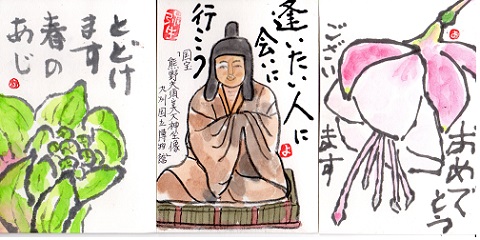 とどけ
ます
春の
あじ
弥生
逢いたい人に
会いに
行こう
国宝
熊野夫須美大神坐像
九州国立博物館
よ
おめでとう
ござい
ます